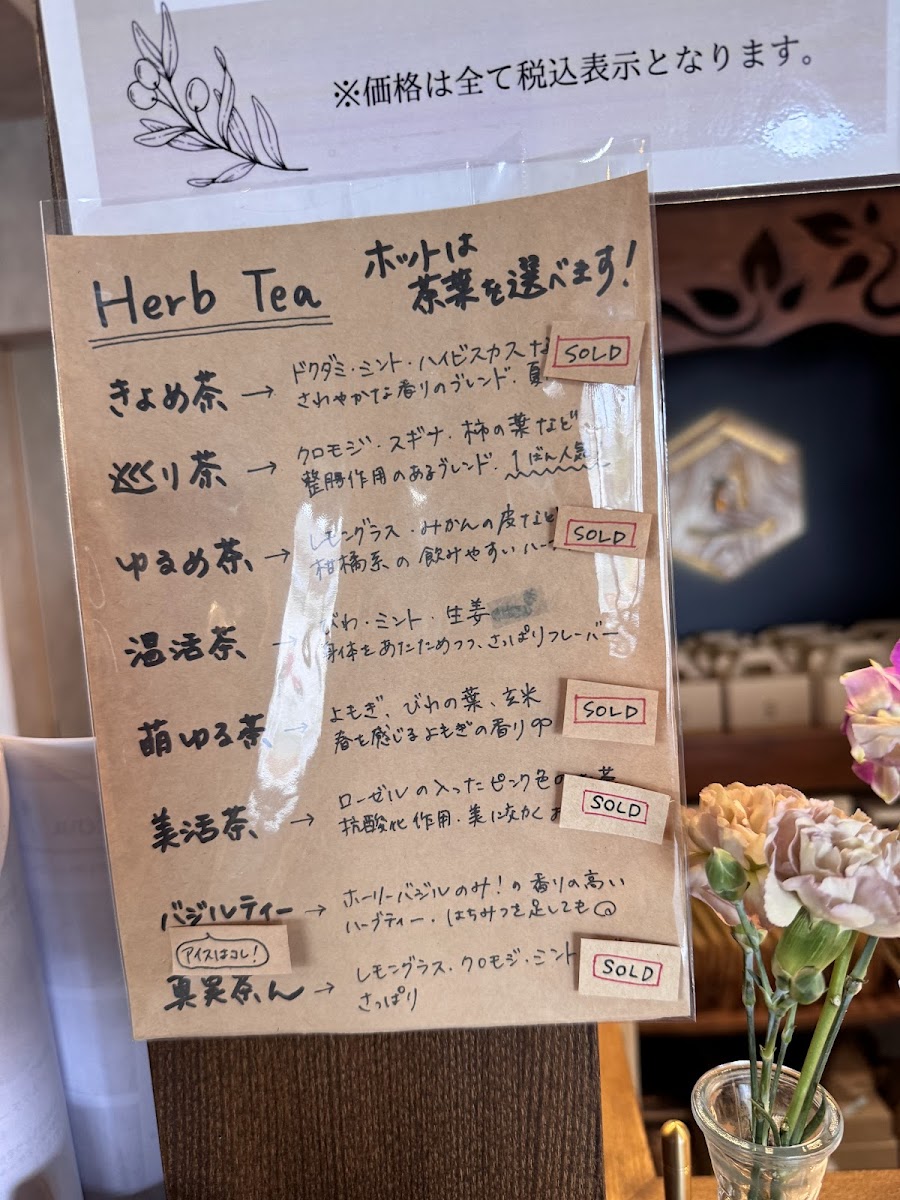 ※価格は全て税込表示となります。
Herb Tea
ホットは
茶葉を選べます!
きよめ茶 → ドクダミ・ミント・ハイビスカス
さわやかな香りのブレンド・夏
SOLD
巡り茶 → クロモジ・スギナ・柿の葉など
整腸作用のあるブレンド・1ばん人気
ゆるめ茶 → レモングラス・みかんの皮など
柑橘系の飲みやすいハー
SOLD
温活茶 → びわ・ミント・生姜
身体をあたためつつ、さっぱりフレーバー
萌ゆる茶 → よもぎ、びわの葉、玄米
春を感じるよもぎの香り
SOLD
美活茶 → ローゼルの入ったピンク色の 茶
抗酸化作用・美に
SOLD
バジルティー → ホーリーバジルのみ!の香りの高い
ハーブティー・はちみつを足しても
アイスはコレ!
→ レモングラス・クロモジ・ミント
さっぱり
SOLD